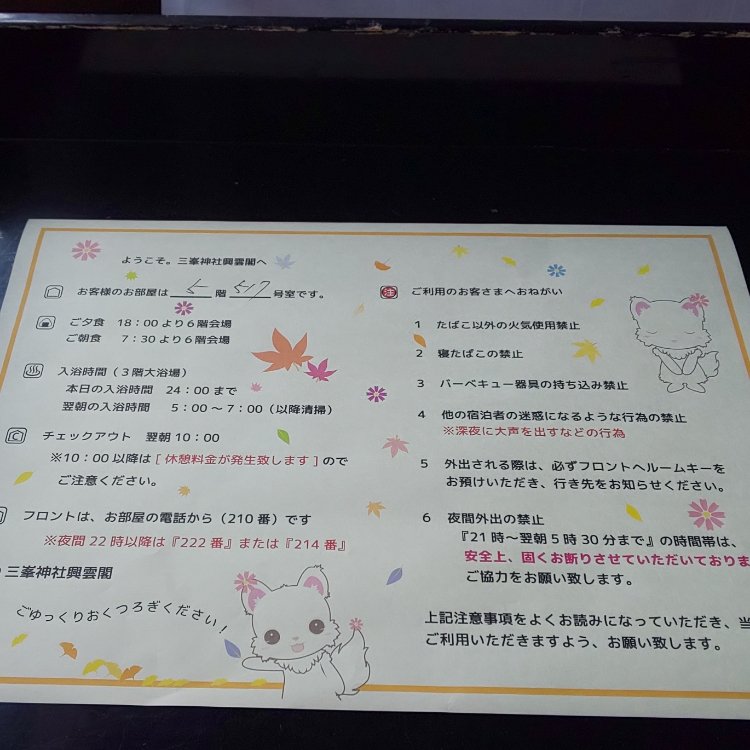 ようこそ。三峯神社興雲閣へ
お客様のお部屋は 5 階 517 号室です。
ご夕食 18：00より6階会場
ご朝食 7：30より6階会場
入浴時間（３階大浴場）
本日の入浴時間 24：00まで
翌朝の入浴時間 5：00～7：00（以降清掃）
チェックアウト 翌朝10：00
※10：00以降は[休憩料金が発生致します]ので
ご注意ください。
フロントは、お部屋の電話から（210番）です
※夜間22時以降は『222番』または『214番』
三峯神社興雲閣
ごゆっくりおくつろぎください！
注 ご利用のお客さまへおねがい
1 たばこ以外の火気使用禁止
2 寝たばこの禁止
3 バーベキュー器具の持ち込み禁止
4 他の宿泊者の迷惑になるような行為の禁止
※深夜に大声を出すなどの行為
5 外出される際は、必ずフロントへルームキーを
お預けいただき、行き先をお知らせください。
6 夜間外出の禁止
『21時～翌朝5時30分まで』の時間帯は、
安全上、固くお断りさせていただいておりま
ご協力をお願い致します。
上記注意事項をよくお読みになっていただき、当
ご利用いただきますよう、お願い致します。